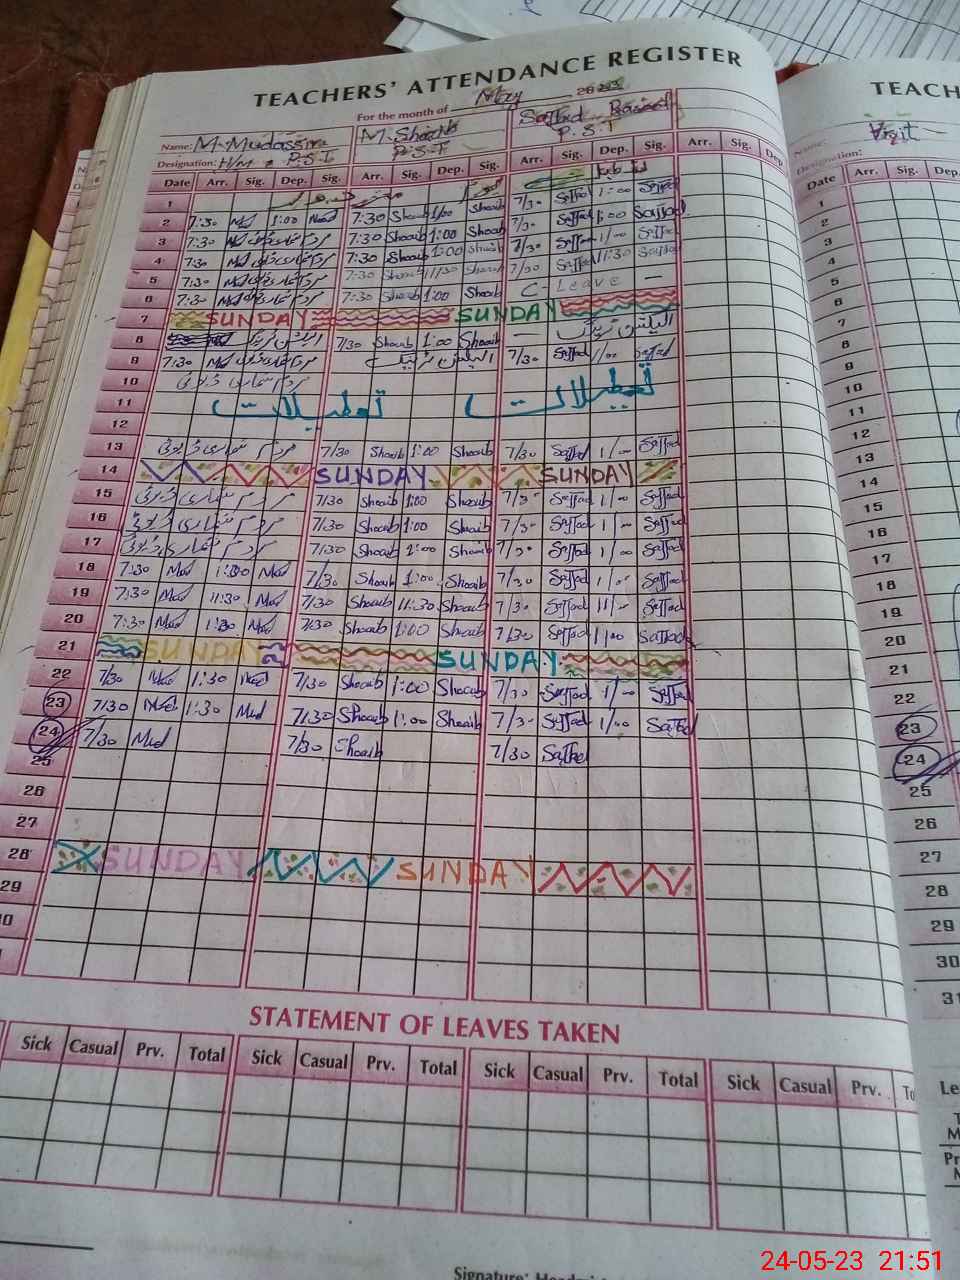 TEACHERS' ATTENDANCE REGISTER
For the month of May 20
Name: M. Mudassir M. Shoaib
Designation: H/M P.S.T P.S.T P.S.T
Date Arr. Sig. Dep. Sig. Arr. Sig. Dep. Sig. Arr. Sig. Dep. Sig. Arr. Sig. Dep
1
2 7:30 Mud 1:00 Mud 7:30 Shoaib 1/00 Shoaib 7/30 Saffad 1:00 Saffad
3 7:30 Mud مردم شماری ڈیوٹی 7:30 Shoaib 1:00 Shoaib 7/30 Saffad 1:00 Saffad
4 7:30 Mud مردم شماری ڈیوٹی 7:30 Shoaib 1:00 Shoaib 7/30 Saffad 1/00 Saffad
5 7:30 Mud مردم شماری ڈیوٹی 7:30 Shoaib 11/30 Shoaib 7/30 Saffad 11:30 Saffad
6 7:30 Mud مردم شماری ڈیوٹی 7:30 Shoaib 1:00 Shoaib C- Leave —
7 SUNDAY SUNDAY
8 الیکشن ٹریننگ 7/30 Shoaib 1:00 Shoaib — الیکشن ٹریننگ
9 7:30 Mud مردم شماری ڈیوٹی الیکشن ٹریننگ 7/30 Saffad 1/00 Saffad
10 مردم شماری ڈیوٹی
11 تعطیلات تعطیلات
12
13 مردم شماری ڈیوٹی 7/30 Shoaib 1:00 Shoaib 7/30 Saffad 1/00 Saffad
14 SUNDAY SUNDAY
15 مردم شماری ڈیوٹی 7/30 Shoaib 1:00 Shoaib 7/30 Saffad 1/00 Saffad
16 مردم شماری ڈیوٹی 7/30 Shoaib 1:00 Shoaib 7/30 Saffad 1/00 Saffad
17 مردم شماری ڈیوٹی 7/30 Shoaib 1:00 Shoaib 7/30 Saffad 1/00 Saffad
18 7:30 Mud 1:30 Mud 7/30 Shoaib 1:00 Shoaib 7/30 Saffad 1/00 Saffad
19 7:30 Mud 11:30 Mud 7/30 Shoaib 11:30 Shoaib 7/30 Saffad 11/00 Saffad
20 7:30 Mud 1:30 Mud 7/30 Shoaib 1:00 Shoaib 7/30 Saffad 1/00 Saffad
21 SUNDAY SUNDAY
22 7/30 Mud 1:30 Mud 7/30 Shoaib 1:00 Shoaib 7/30 Saffad 1/00 Saffad
23 7/30 Mud 1:30 Mud 7/30 Shoaib 1:00 Shoaib 7/30 Saffad 1/00 Saffad
24 7/30 Mud 7/30 Shoaib 7/30 Saffad
25
26
27
28 SUNDAY SUNDAY
29
STATEMENT OF LEAVES TAKEN
Sick Casual Prv. Total Sick Casual Prv. Total Sick Casual Prv. Total Sick Casual Prv.
Signature:
TEACH
Name: Visit
Designation:
Date Arr. Sig. Dep.
1
2
3
4
5
6
7
8
9
10
11
12
13
14
15
16
17
18
19
20
21
22
23
24
25
26
27
28
29
30
31
24-05-23 21:51